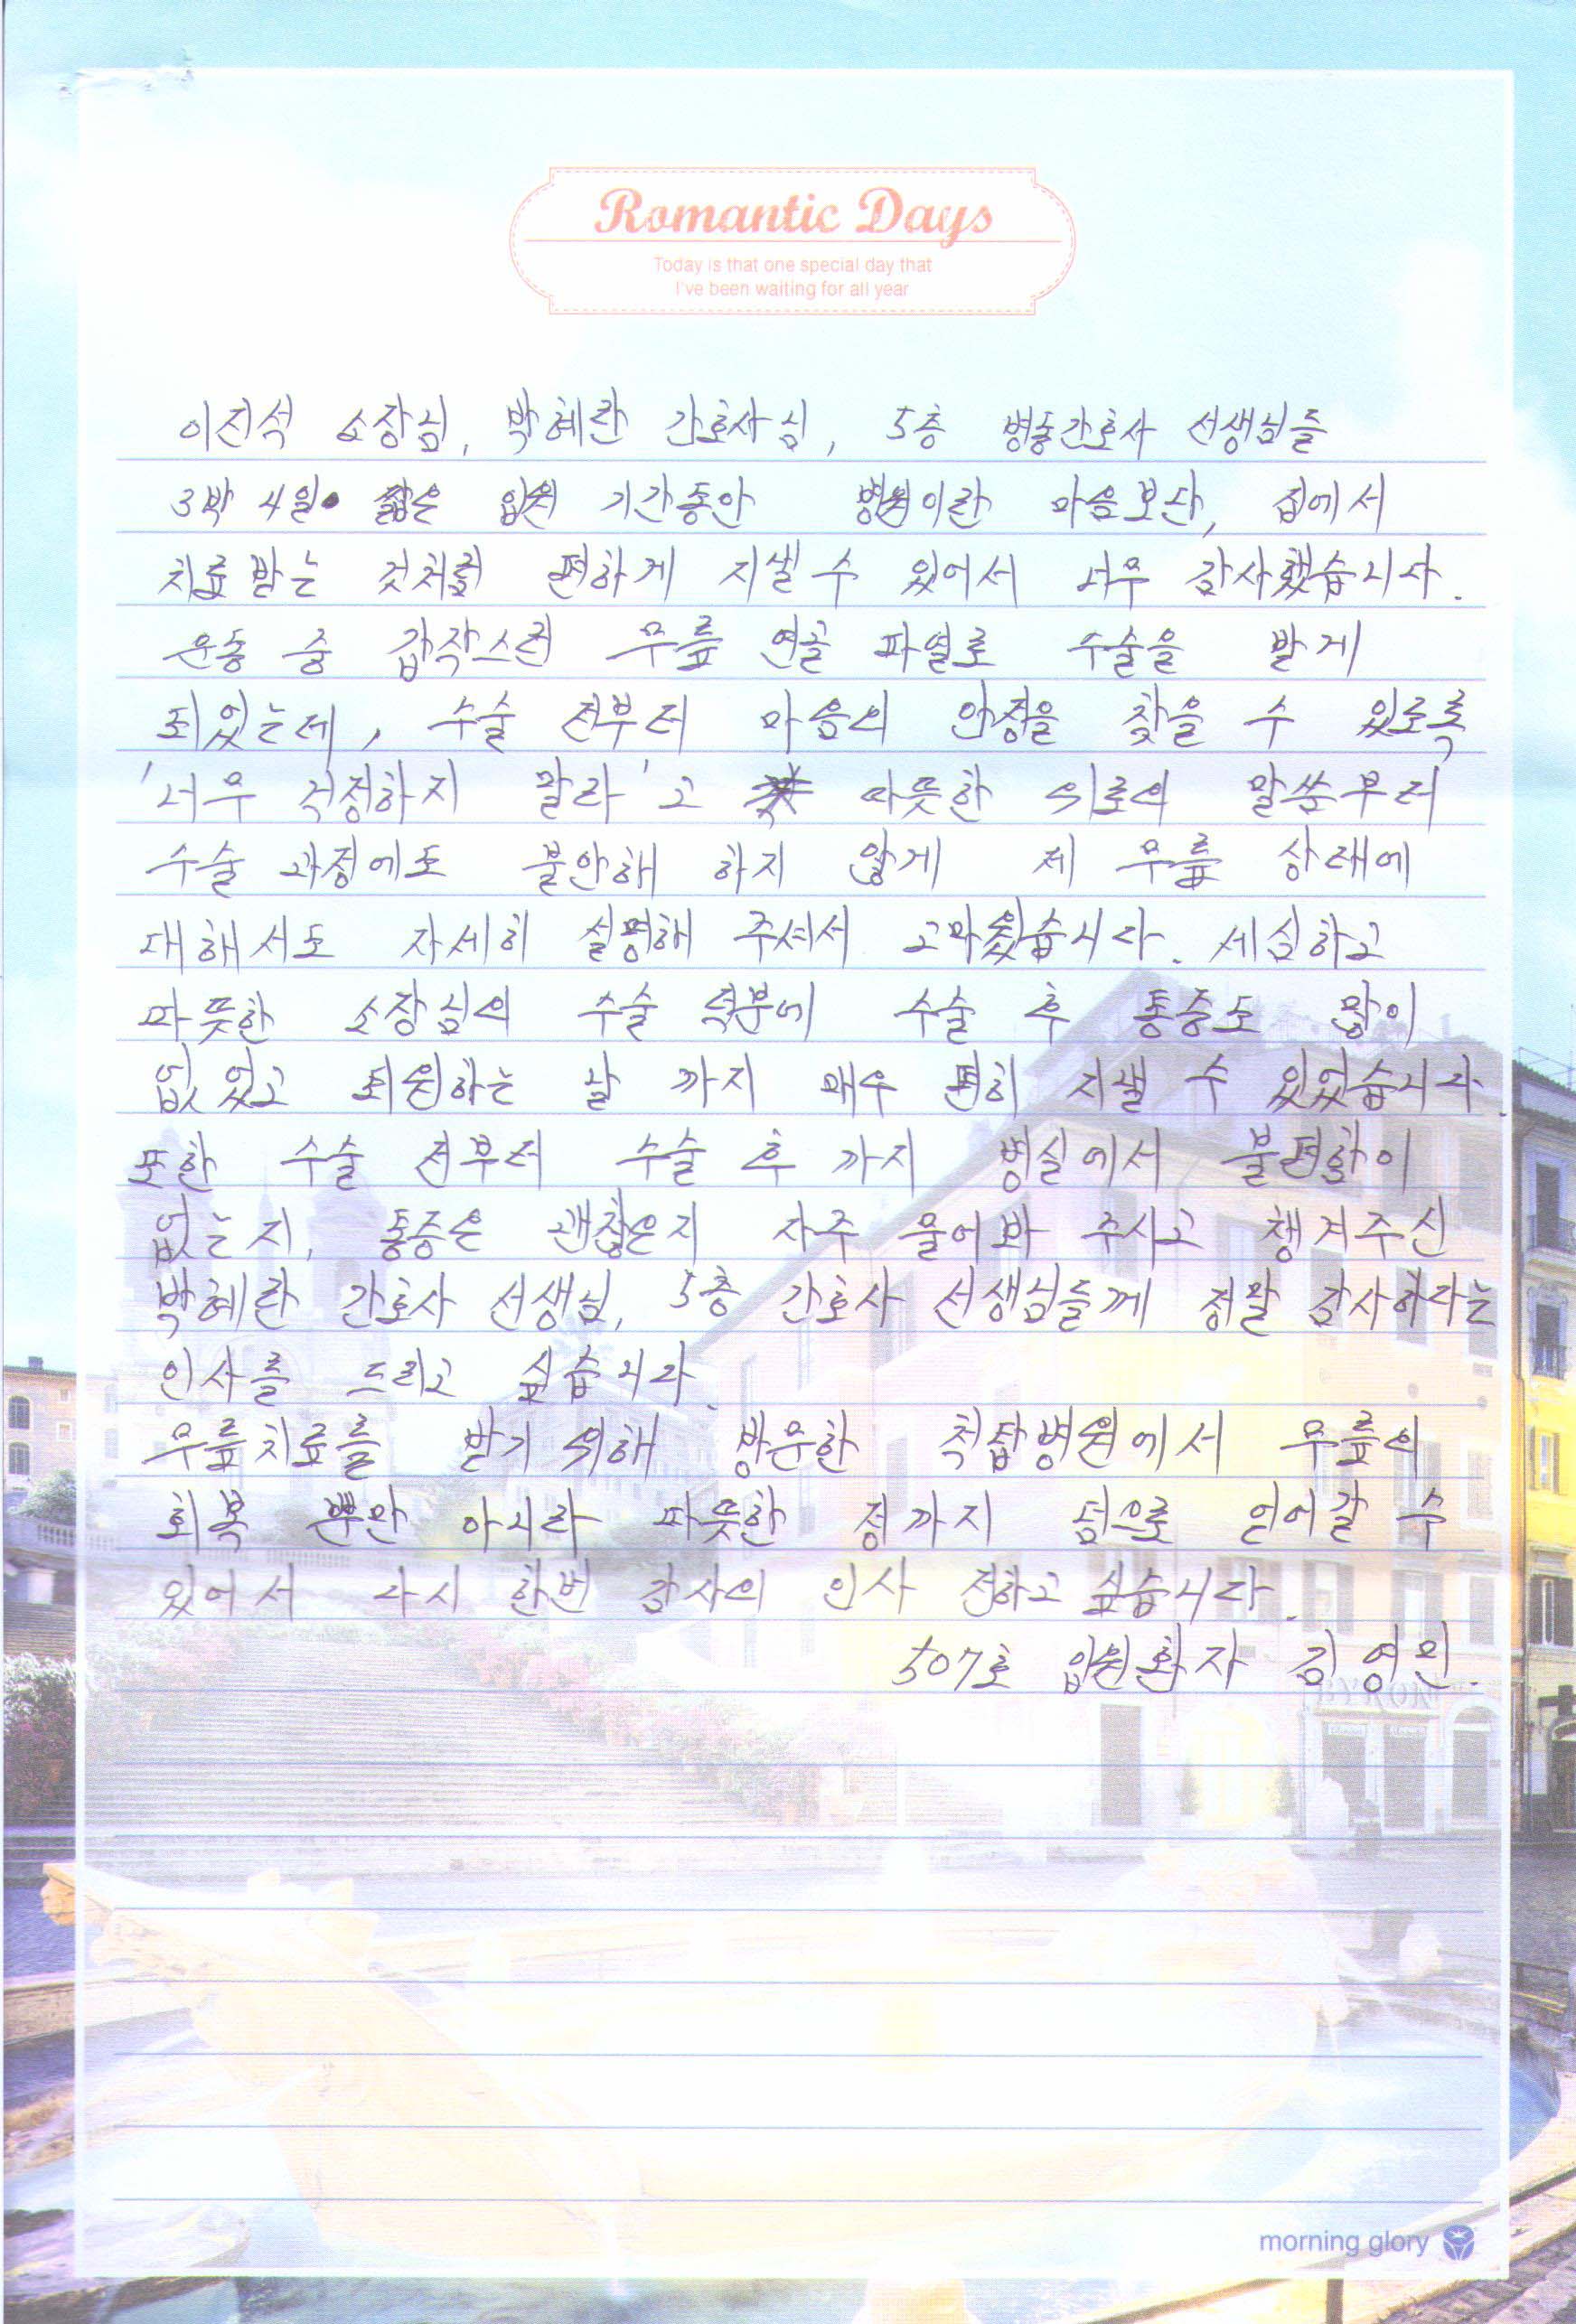 Romantic Days
Today is that one special day that
I've been waiting for all year
이진석 소장님, 박혜란 간호사님, 5층 병동간호사 선생님들
3박 4일 짧은 입원 기간동안 병원이란 마음보단, 집에서
치료 받는 것처럼 편하게 지낼 수 있어서 너무 감사했습니다.
운동 중 갑작스런 무릎 연골 파열로 수술을 받게
되었는데, 수술 전부터 마음의 안정을 찾을 수 있도록
'너무 걱정하지 말라'고 따뜻한 위로의 말씀부터
수술 과정에도 불안해 하지 않게 제 무릎 상태에
대해서도 자세히 설명해 주셔서 고마웠습니다. 세심하고
따뜻한 소장님의 수술 덕분에 수술 후 통증도 많이
없었고 퇴원하는 날 까지 매우 편히 지낼 수 있었습니다.
또한 수술 전부터 수술 후 까지 병실에서 불편함이
없는지, 통증은 괜찮은지 자주 물어봐 주시고 챙겨주신
박혜란 간호사 선생님, 5층 간호사 선생님들께 정말 감사하다는
인사를 드리고 싶습니다.
무릎치료를 받기 위해 방문한 척탑병원에서 무릎의
회복 뿐만 아니라 따뜻한 정까지 덤으로 얻어갈 수
있어서 다시 한번 감사의 인사 전하고 싶습니다.
507호 입원환자 김영민.
morning glory